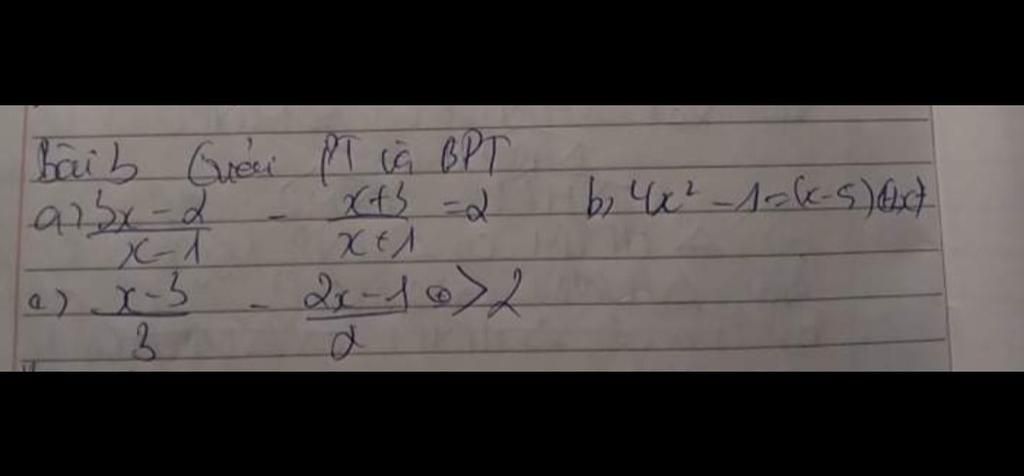 Bài 5 Giải PT và BPT
a) 3x-2/x-1 - x+3/x+1 = 2 b, 4x² - 1 = (x-5)
c) x-3/3 - 2x-1/2 > 2